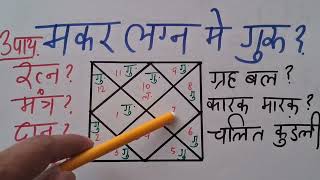 उपाय मकर लग्न मे गुरु?
रत्न?
मंत्र?
दान?
11 गु
9 गु
गु 12
10 ल.
8 गु
1 गु
6 गु
3 गु
5 गु
ग्रह बल?
कारक मारक?
चलित कुंडली